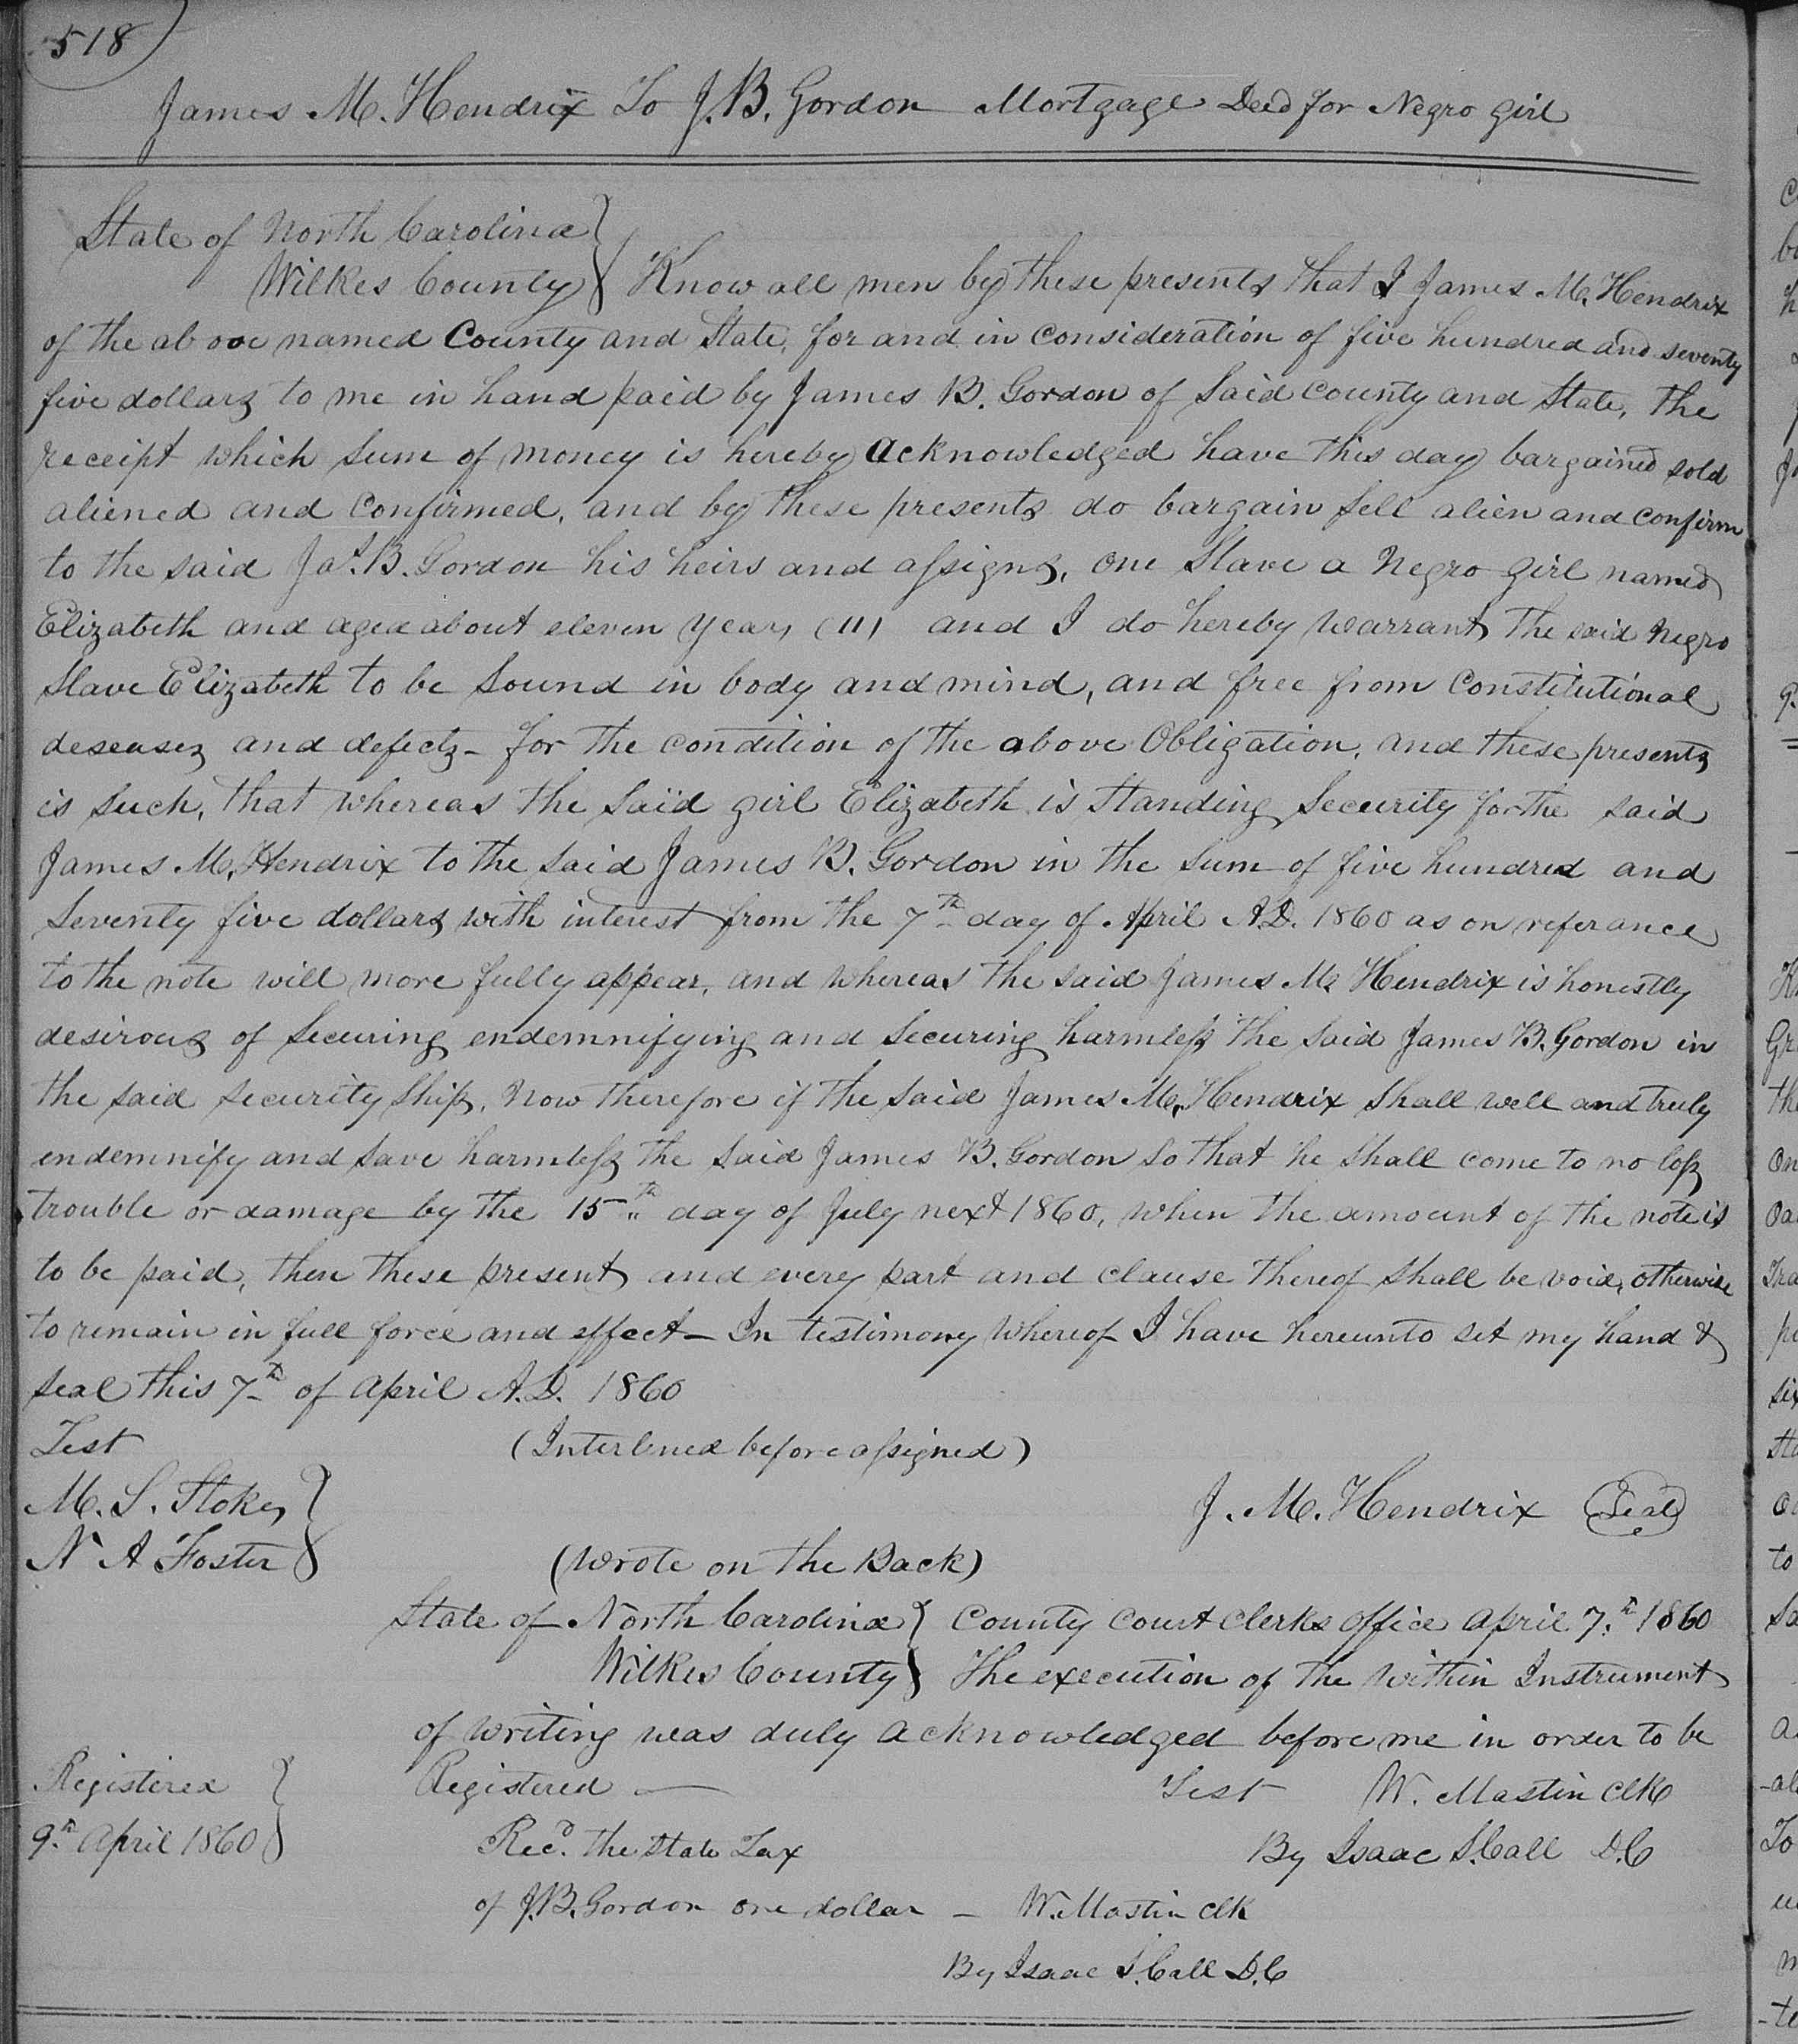 518
James M. Hendrix To J. B. Gordon Mortgage Deed for Negro girl
State of North Carolina }
Wilkes County } Know all men by these presents that I James M. Hendrix
of the above named County and State, for and in consideration of five hundred and seventy
five dollars to me in hand paid by James B. Gordon of Said County and State, the
receipt which Sum of money is hereby acknowledged have this day bargained sold
aliened and Confirmed, and by these presents do bargain Sell alien and confirm
to the said Jas. B. Gordon his heirs and assigns, one Slave a Negro girl named
Elizabeth and aged about eleven years (11) and I do hereby warrant the said Negro
Slave Elizabeth to be Sound in body and mind, and free from Constitutional
deseases and defects - for the condition of the above Obligation, and these presents
is such, that whereas the Said girl Elizabeth is Standing Security for the said
James M. Hendrix to the Said James B. Gordon in the Sum of five hundred and
Seventy five dollars with interest from the 7th day of April A.D. 1860 as on referance
to the note will more fully appear, and whereas the said James M. Hendrix is honestly
desirous of Securing endemnifying and Securing harmless the Said James B. Gordon in
the said security Ship, Now therefore if the Said James M. Hendrix Shall well and truly
endemnify and Save harmless the Said James B. Gordon So that he Shall come to no loss
trouble or damage by the 15th day of July next 1860, when the amount of the note is
to be paid, then these presents and every part and clause thereof Shall be void, otherwise
to remain in full force and effect - In testimony whereof I have hereunto set my hand &
seal this 7th of April A.D. 1860
Test (Interlined before assigned)
M. S. Stokes }
J. M. Hendrix (Seal)
N A Foster }
(Wrote on the Back)
State of North Carolina } County Court Clerks office April 7th 1860
Wilkes County } The execution of the within Instrument
of writing was duly acknowledged before me in order to be
Registered } Registered — Test W. Mastin Clk
9th April 1860 } Recd. the State Tax By Isaac S. Call D.C
of J. B. Gordon one dollar - W. Mastin Clk
By Isaac S. Call D.C